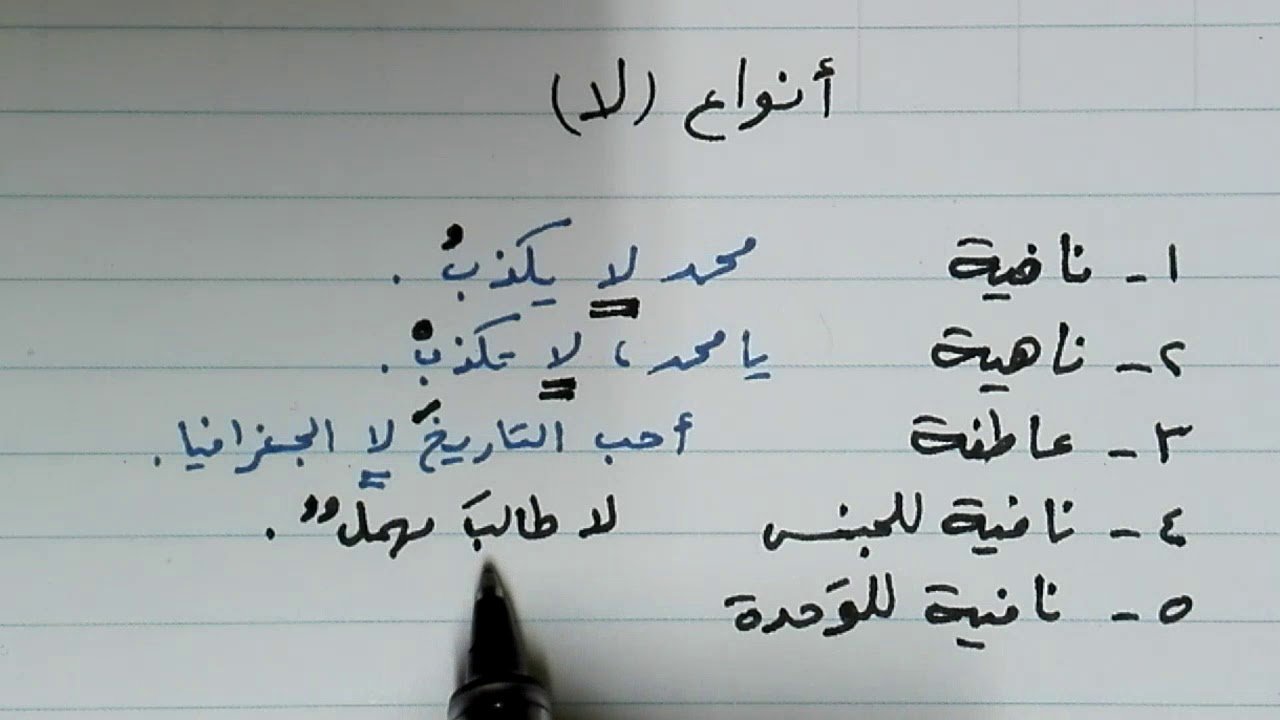 أنواع (لا)
١ - نافية محمد لا يكذبُ .
٢ - ناهية يا محمد ، لا تكذبْ .
٣ - عاطفة أحب التاريخَ لا الجغرافيا .
٤ - نافية للجنس لا طالبَ مهملٌ .
٥ - نافية للوَحدة